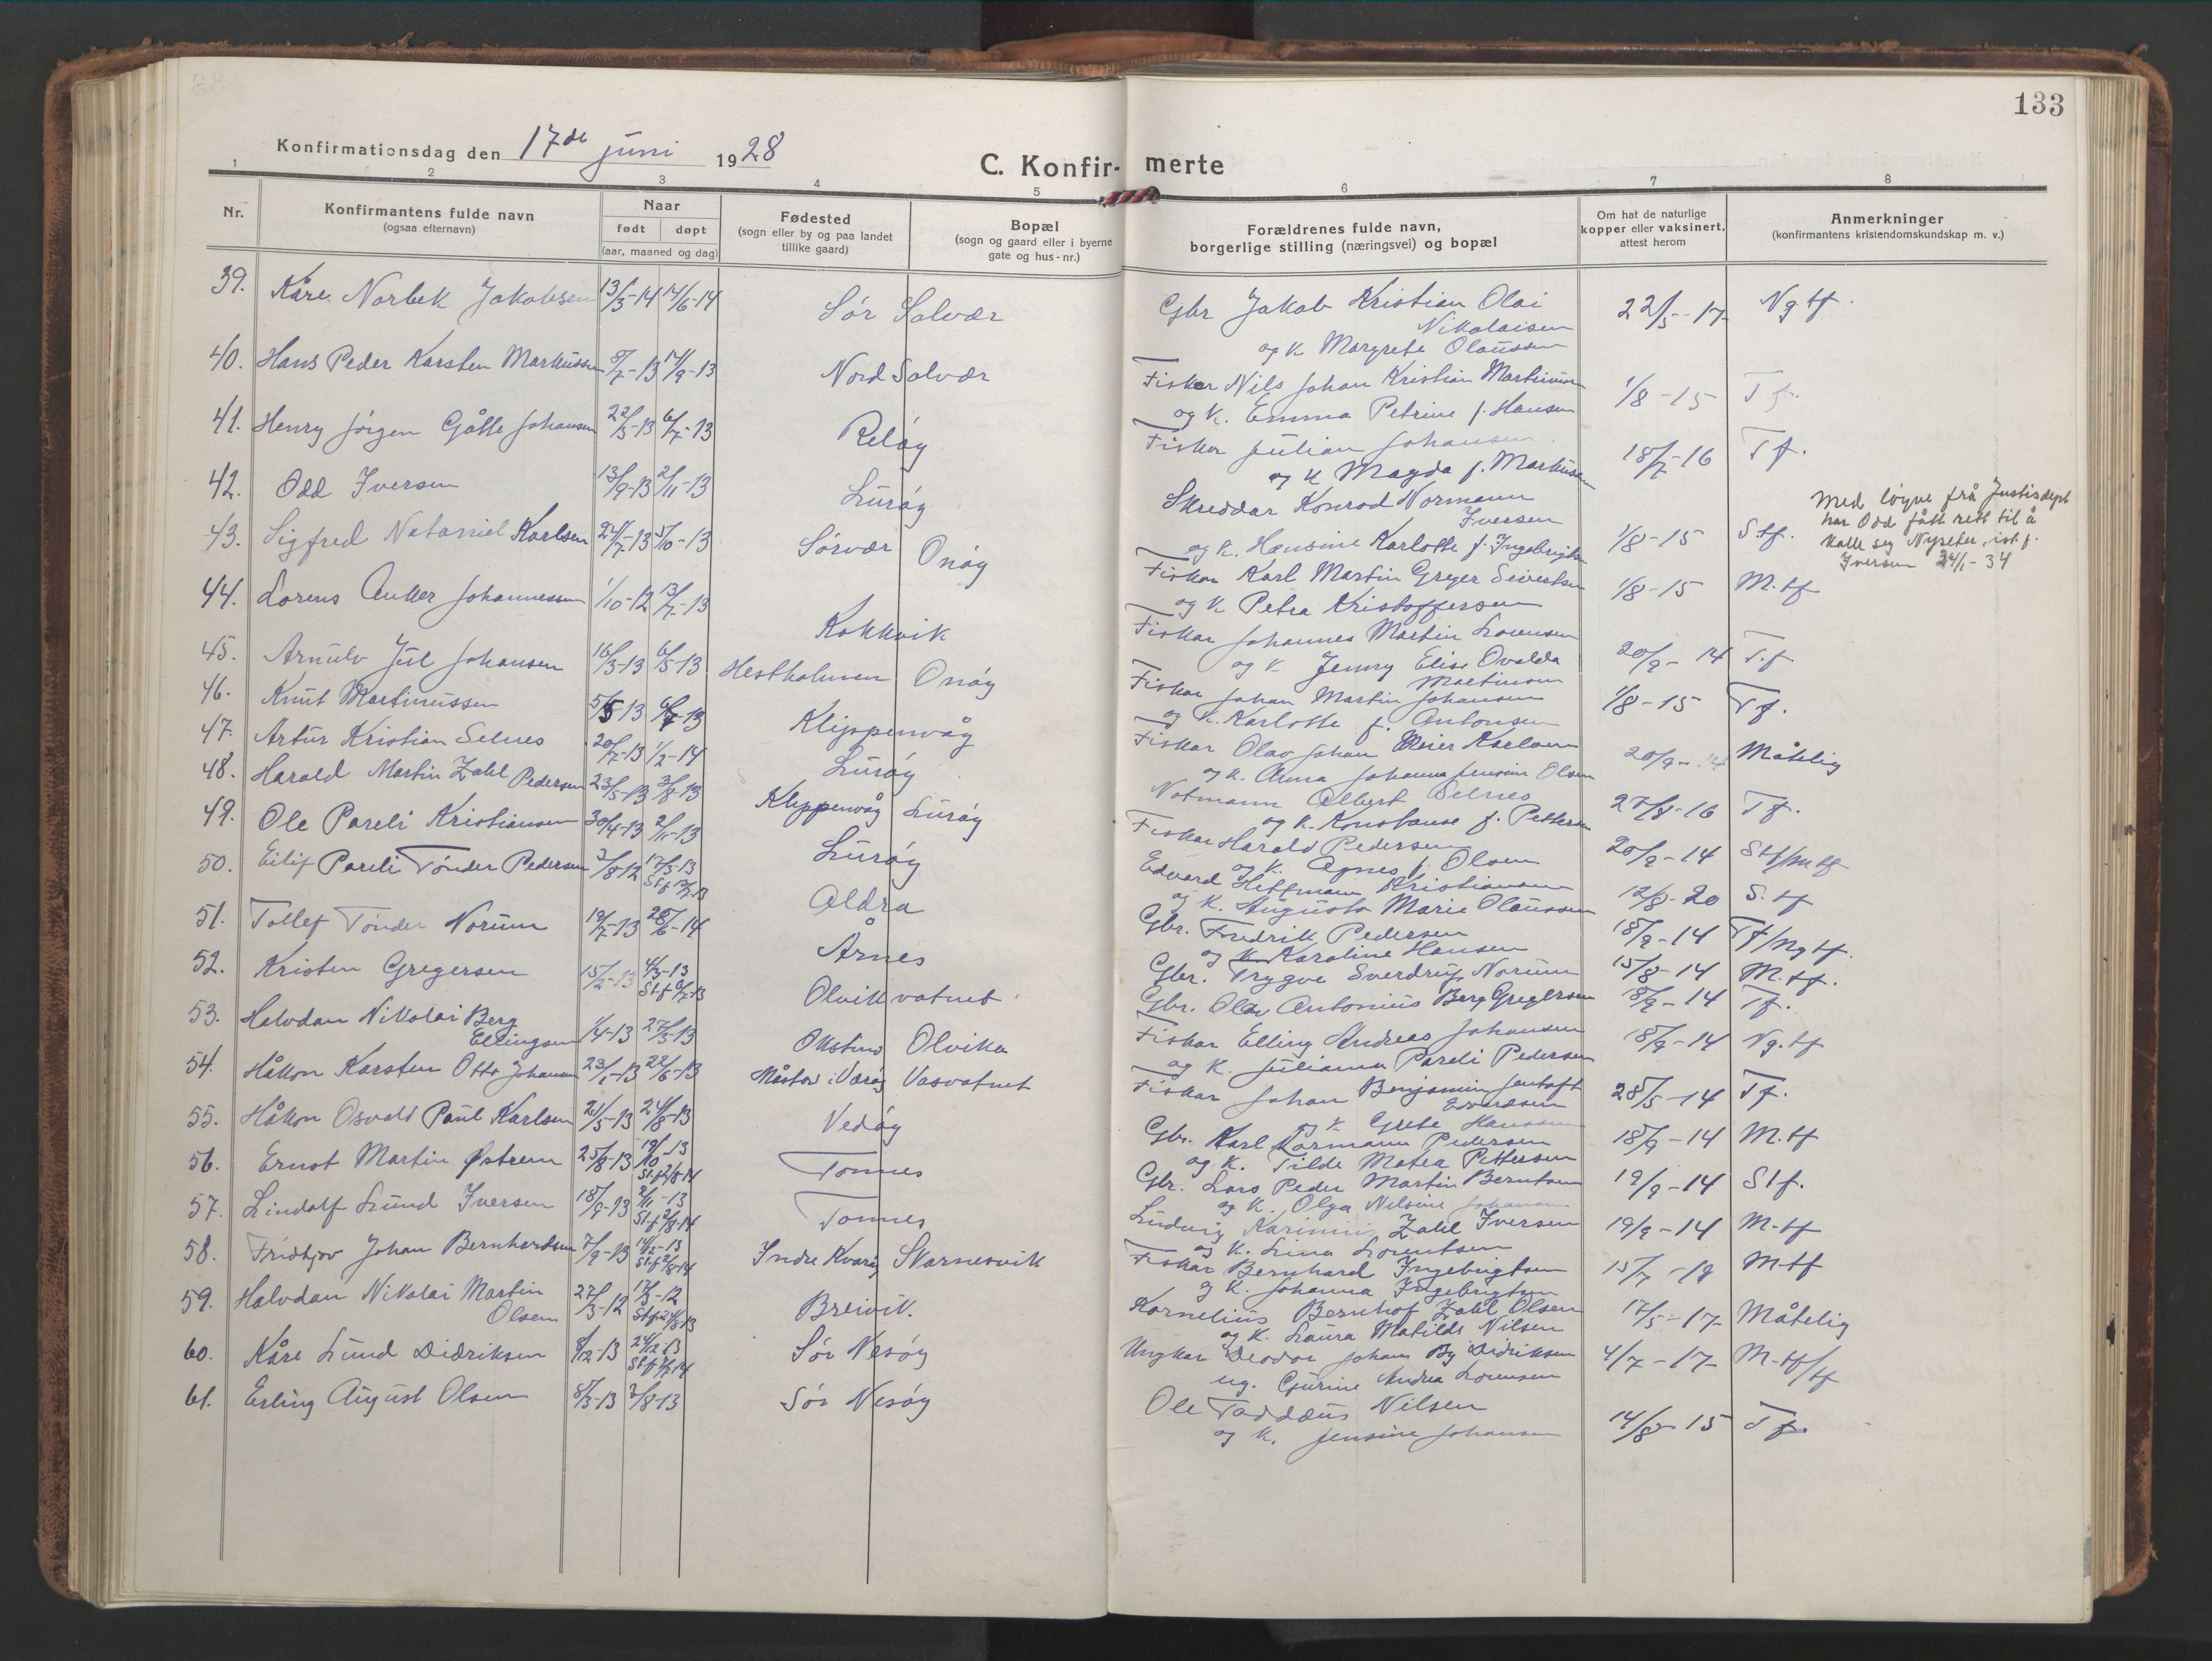 133
Konfirmationsdag den 17de juni 1928
C. Konfir- merte
1 2 3 4 5 6 7 8
Nr.
Konfirmantens fulde navn
(ogsaa efternavn)
Naar
født døpt
(aar, maaned og dag)
Fødested
(sogn eller by og paa landet
tillike gaard)
Bopæl
(sogn og gaard eller i byerne
gate og hus-nr.)
Forældrenes fulde navn,
borgerlige stilling (næringsvei) og bopæl
Om hat de naturlige
kopper eller vaksinert,
attest herom
Anmerkninger
(konfirmantens kristendomskundskap m. v.)
39. Kåre Norbek Jakobsen 13/3-14 14/6-14 Sør Solvær Gbr Jakob Kristian Olai 22/5-17 Ng tf.
Nikolaisen
og K Margrete Olaussen
40. Hans Peder Karsten Markussen 5/7-13 14/9-13 Nord Solvær Fisker Nils Johan Kristian Martinusen 1/8-15 T f.
og K. Emma Petrine f. Hansen
41. Henry Jørgen Gåtte Johansen 22/5-13 6/7-13 Reløy Fisker Julian Johansen 18/7-16 T f.
og K Magda f. Markussen
42. Odd Iversen 13/9-13 2/11-13 Lurøy Skreddar Konrad Normann 1/8-15 S tf.
Iversen
og K. Hansine Karlotte f. Ingebrigtsen
Med løyve frå Justisdept
har Odd fått rett til å
kalle seg Nyseter, ist. f.
Iversen 24/1-34
43. Sigfred Nataniel Karlsen 24/7-13 5/10-13 Sørvær Onøy Fiskar Karl Martin Greger Sivertsen 1/8-15 M.tf
og K Petra Kristoffersen
44. Lorens Anker Johannessen 1/10-12 13/7-13 Kokkvik Fiskar Johannes Martin Lorensen 20/9-14 T.f
og K Jenny Elise Ovalda
Martinsen
45. Arnulv Juel Johansen 16/3-13 6/5-13 Hestholmen Onøy Fiskar Johan Martin Johansen 1/8-15 Tf.
og K. Karlotte f. Antonsen
46. Knut Martinussen 5/5-13 6/7-13 Klippenvåg Fiskar Olav Johan Meier Karlsen 20/9-14 Måtelig
og K. Anna Johanna Jensine Olsen
47. Artur Kristian Selnes 20/7-13 1/2-14 Lurøy Notmann Albert Selnes 27/8-16 T f.
og K. Konstanse f. Pettersen
48. Harald Martin Zahl Pedersen 23/5-13 3/8-13 Klippenvåg Lurøy Fiskar Harald Pedersen 20/9-14 Stf/mtf
og K. Agnes f. Olsen
49. Ole Pareli Kristiansen 30/4-13 2/11-13 Lurøy Edvard Hoffmann Kristiansen 12/8-20 S. tf
og K. Augusta Marie Olaussen
50. Eilif Pareli Tønder Pedersen 3/8-12 17/3-13 Aldra Gbr. Fredrik Pedersen 18/9-14 Tf/ng tf.
og K Karoline Hansen
51. Tollef Tønder Norum 19/7-13 28/6-14 Årnes Gbr. Trygve Sverdrup Norum 15/8-14 M.tf.
52. Kristen Gregersen 15/2-13 4/3-13 Olvikvatnet Gbr. Olav Antonius Berg Gregersen 18/9-14 Tf.
53. Halvdan Nikolai Berg
Ellingsen 1/4-13 27/3-13 Olvika Fiskar Elling Andreas Johansen 18/9-14 Ng.tf
og K. Julianna Pareli Pedersen
54. Håkon Karsten Otto Johansen 23/1-13 22/6-13 Måstad i Værøy Vasvatnet Fiskar Johan Benjamin Jentoft 28/5-14 Tf.
og K Grete Hanssen
55. Håkon Osvald Paul Karlsen 21/5-13 24/8-13 Vedøy Gbr. Karl Normann Pedersen 18/9-14 M.tf
og K. Tilde Matea Pettersen
56. Ernst Martin Østrem 25/8-13 19/10-13 Tonnes Gbr. Lars Peder Martin Berntsen 19/9-14 St f.
og K. Olga Nilsine Johansen
57. Lindolf Lund Iversen 18/9-13 2/11-13 Tonnes Ludvig Zahl Iversen 19/9-14 M-tf
og K. Lina Lorentsen
58. Fridtjov Johan Bernhardsen 7/9-13 14/12-13 Indre Kvarøy Skarnesvik Fiskar Bernhard Ingebrigtsen 15/7-19 Mtf
og K. Johanna Ingebrigtsen
59. Halvdan Nikolai Martin
Olsen 27/3-12 17/3-12 Breivik. Kornelius Bernhof Zahl Olsen 17/5-17 Måtelig
og K. Laura Matilde Nilsen
60. Kåre Lund Didriksen 8/12-13 24/12-13 Sør Nesøy Ungkar Deodor Johan By Didriksen 4/7-17 M-tf/tf
ug. Gjurine Andrea Lorensen
61. Erling August Olsen 8/3-13 3/8-13 Sør Nesøy Ole Taddæus Nilsen 14/8-15 T f.
og K. Jensine Johansen